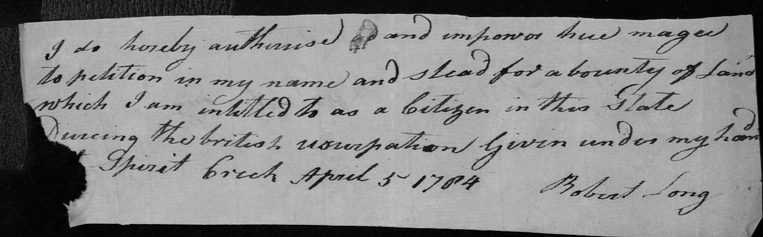 I do hereby authorise and impower hue magee
to petition in my name and stead for a bounty of Land
which I am intitled to as a Citizen in this State
Dureing the british usurpation Given under my hand
Spirit Creek April 5 1784 Robert Long